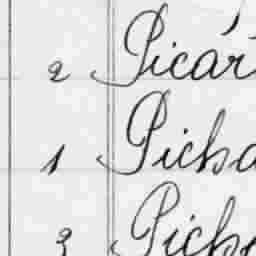 2 Picar
1 Picha
3 Piche